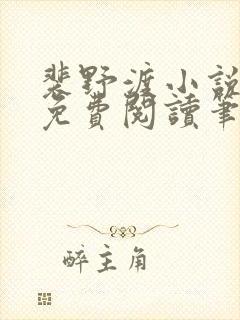 裴野渡小說
免費閱讀筆
醉主角